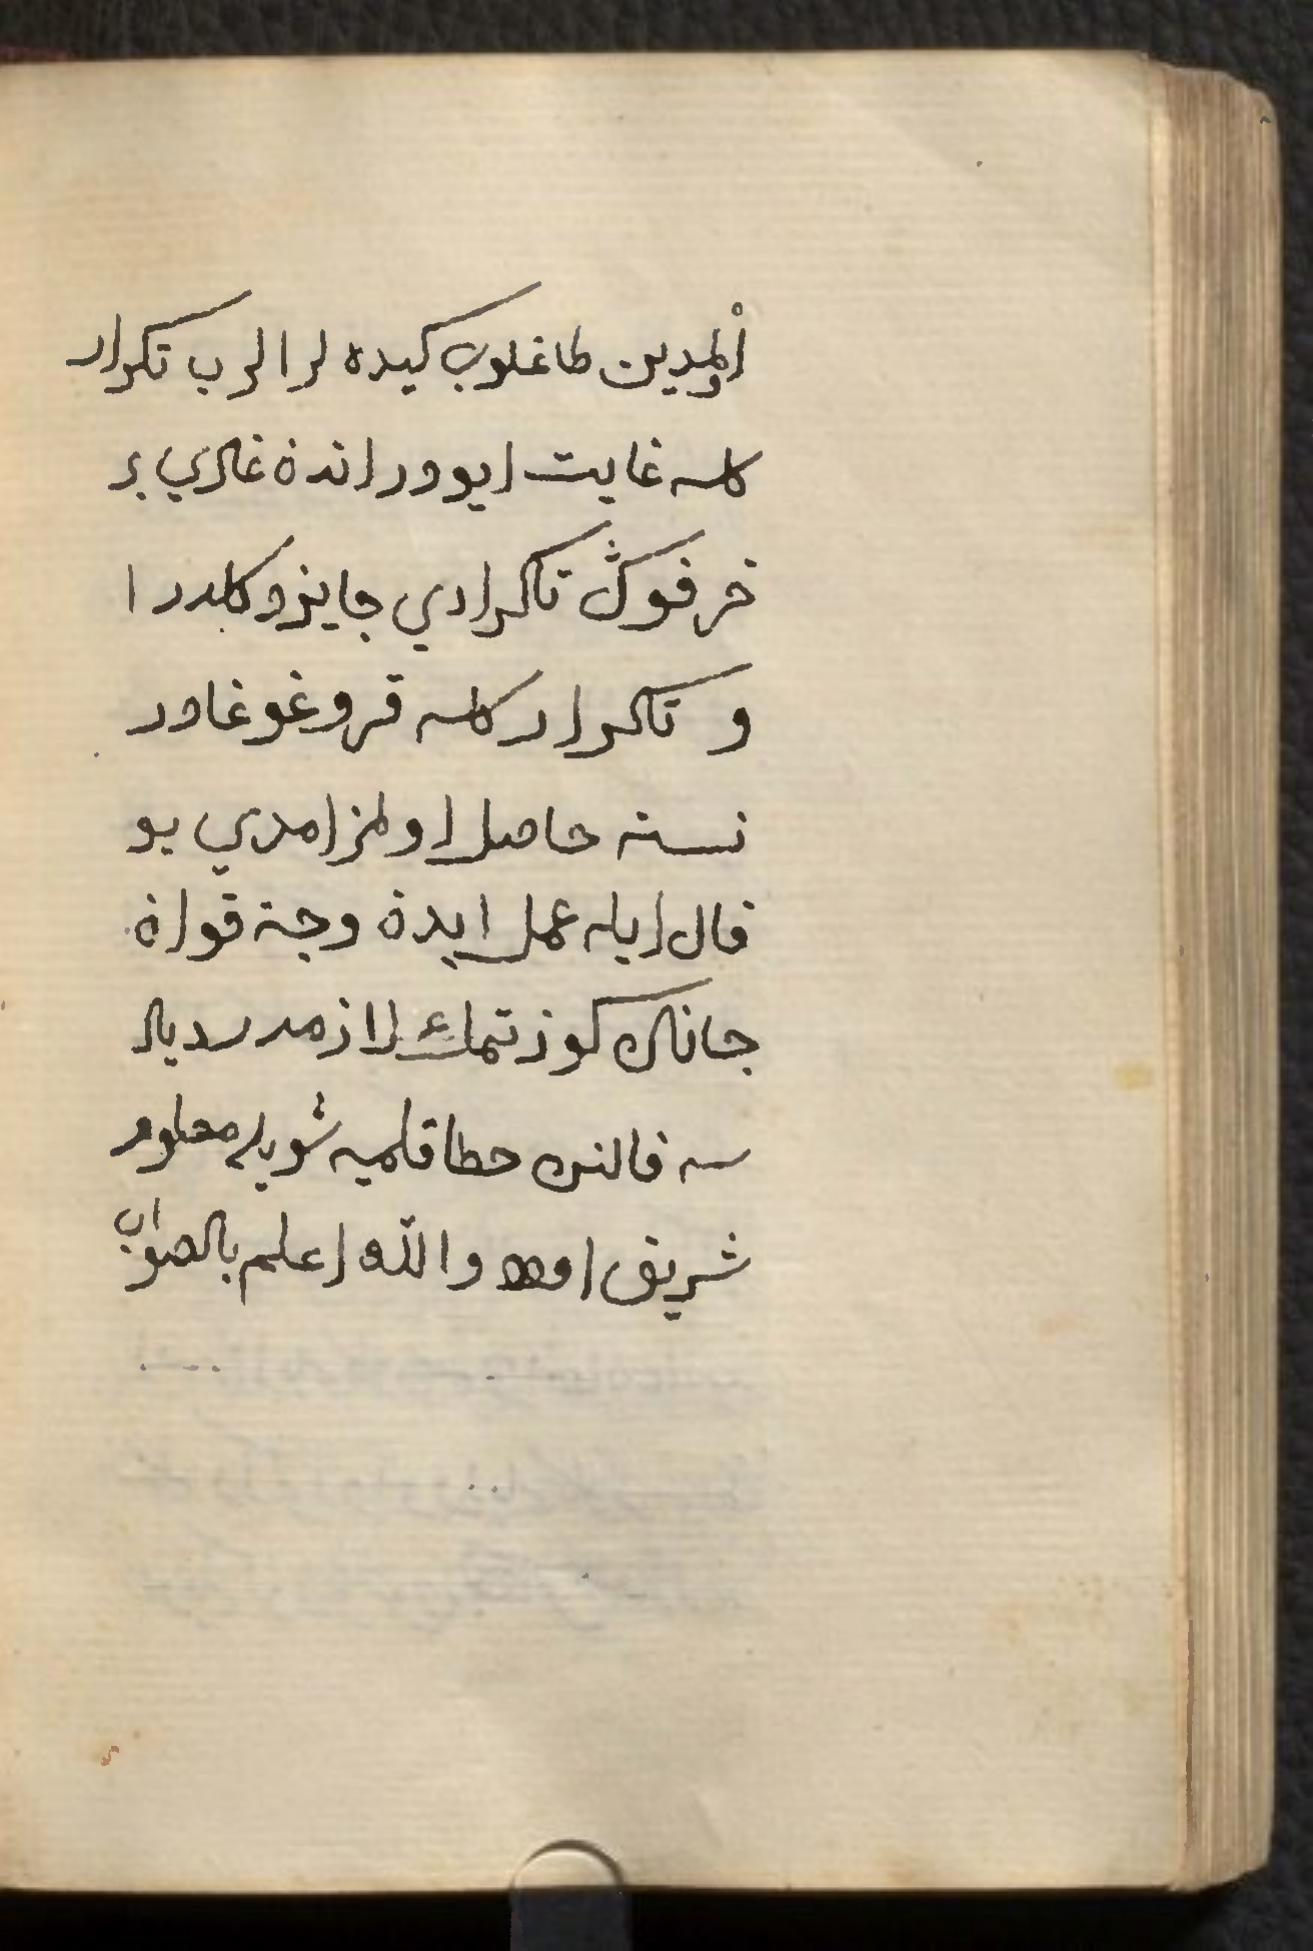 اولمدين طاغلوب كيده لر الر ب تكرار
كلسه غايت ايو در انده غاري بر
حرفوك تاكراري جايز و كلدر ا
و تاكرار كلسه قروغوغادر
نسنه حاصل اولمز امدي بو
فال ايله عمل ايده وجنه قواة
جانك كوزتمك لازمدر سديال
سه فالنن حطا قلميه شويله معلوم
شريف اوله والله اعلم بالصواب